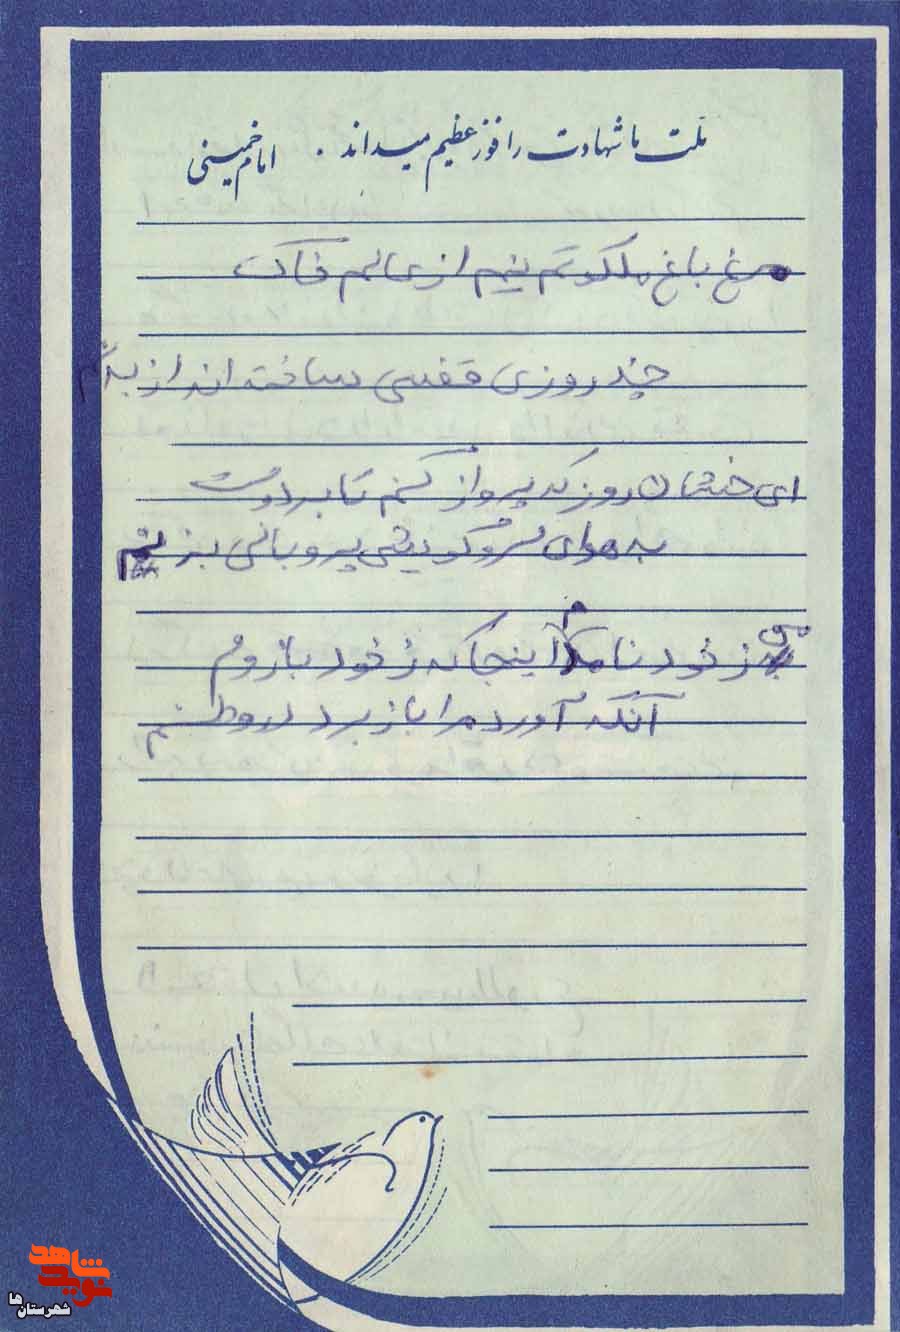 ملت ما شهادت را فوز عظیم میداند . امام خمینی
مرغ باغ ملکوتم نیم از عالم خاک
چند روزی قفسی ساخته اند از بدنم
ای خوشان روز که پرواز کنم تا بر دوست
به هوای سر کویش پر و بالی بزنم
من ز خود نامدم اینجا که ز خود باز روم
آنکه آورد مرا باز برد در وطنم
شاهد
نوید
شهرستان ها